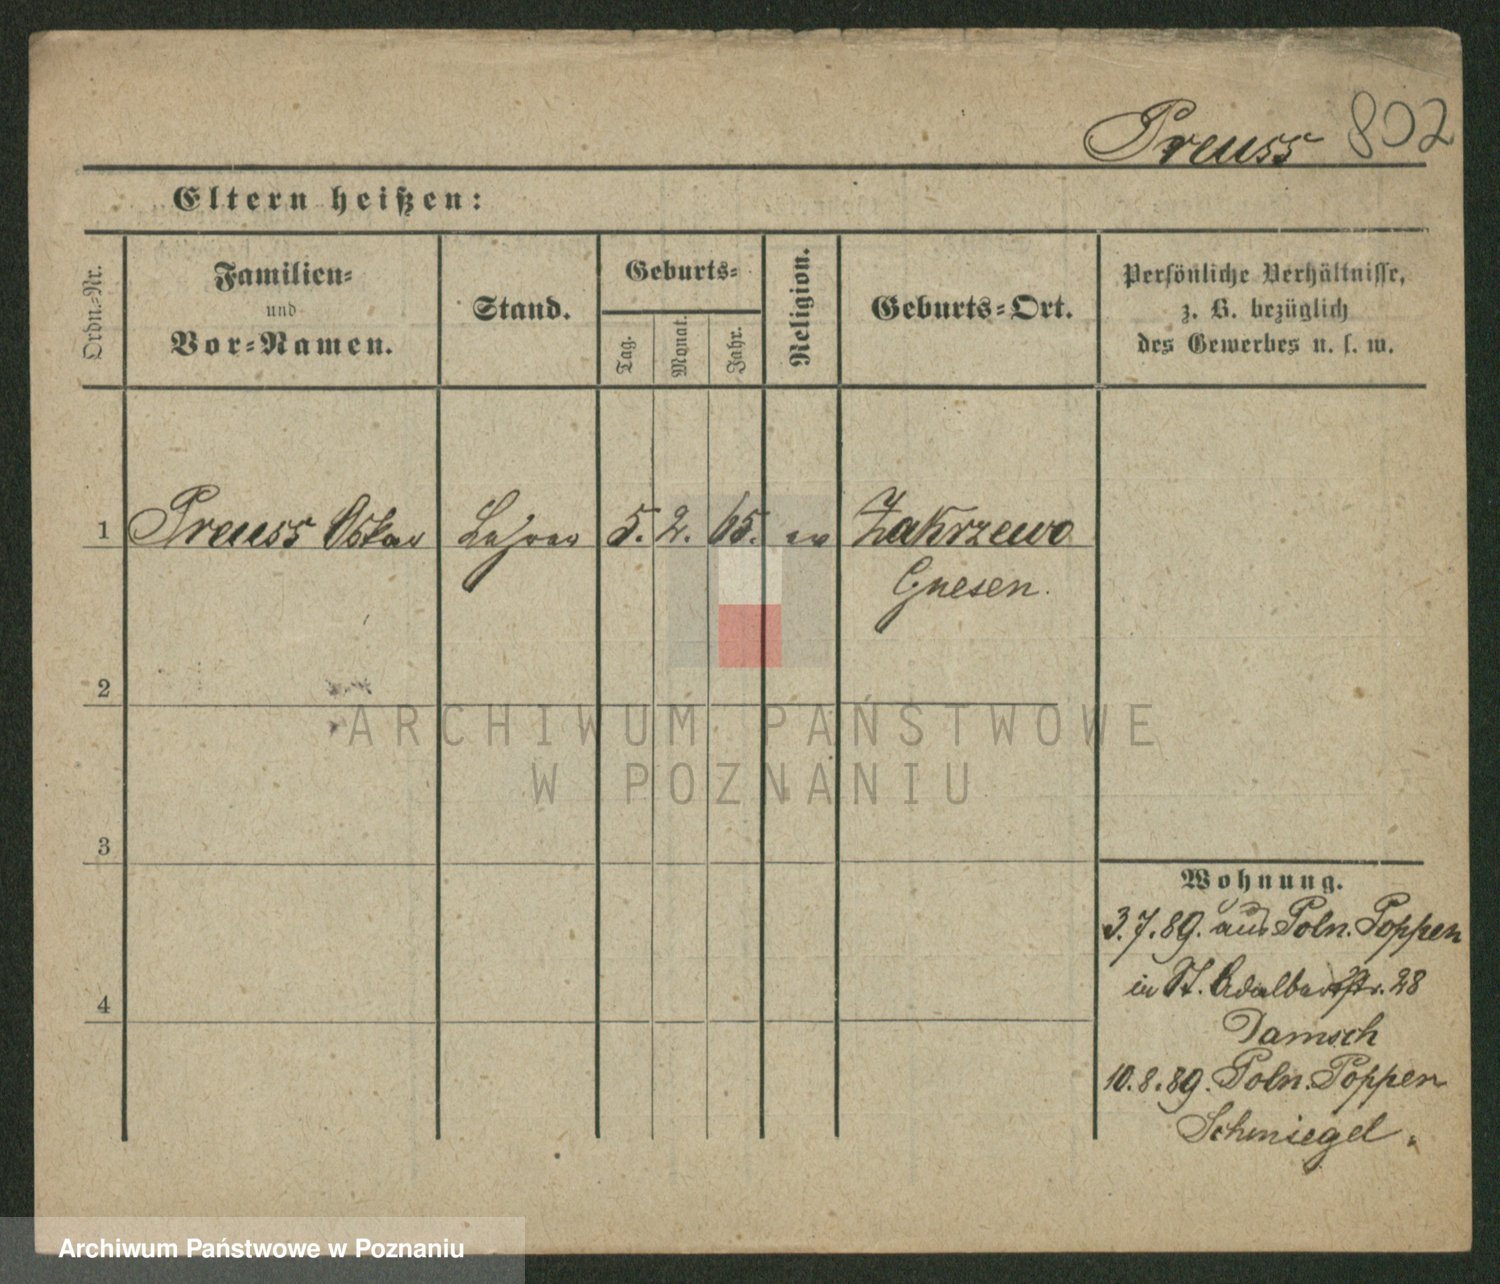 Preuss 802
Eltern heißen:
Ordn.-Nr.
Familien-
und
Vor-Namen.
Stand.
Geburts-
Tag.
Monat.
Jahr.
Religion.
Geburts-Ort.
Persönliche Verhältnisse,
z. B. bezüglich
des Gewerbes u. s. w.
1 Preuss Oskar Lehrer 5. 2. 65. ev Zakrzewo
Gnesen.
2
3
4
Wohnung.
3.7.89. aus Poln. Poppen
in St. Adalbertstr. 28
Damsch
10.8.89. Poln. Poppen
Schmiegel.
ARCHIWUM PAŃSTWOWE
W POZNANIU
Archiwum Państwowe w Poznaniu